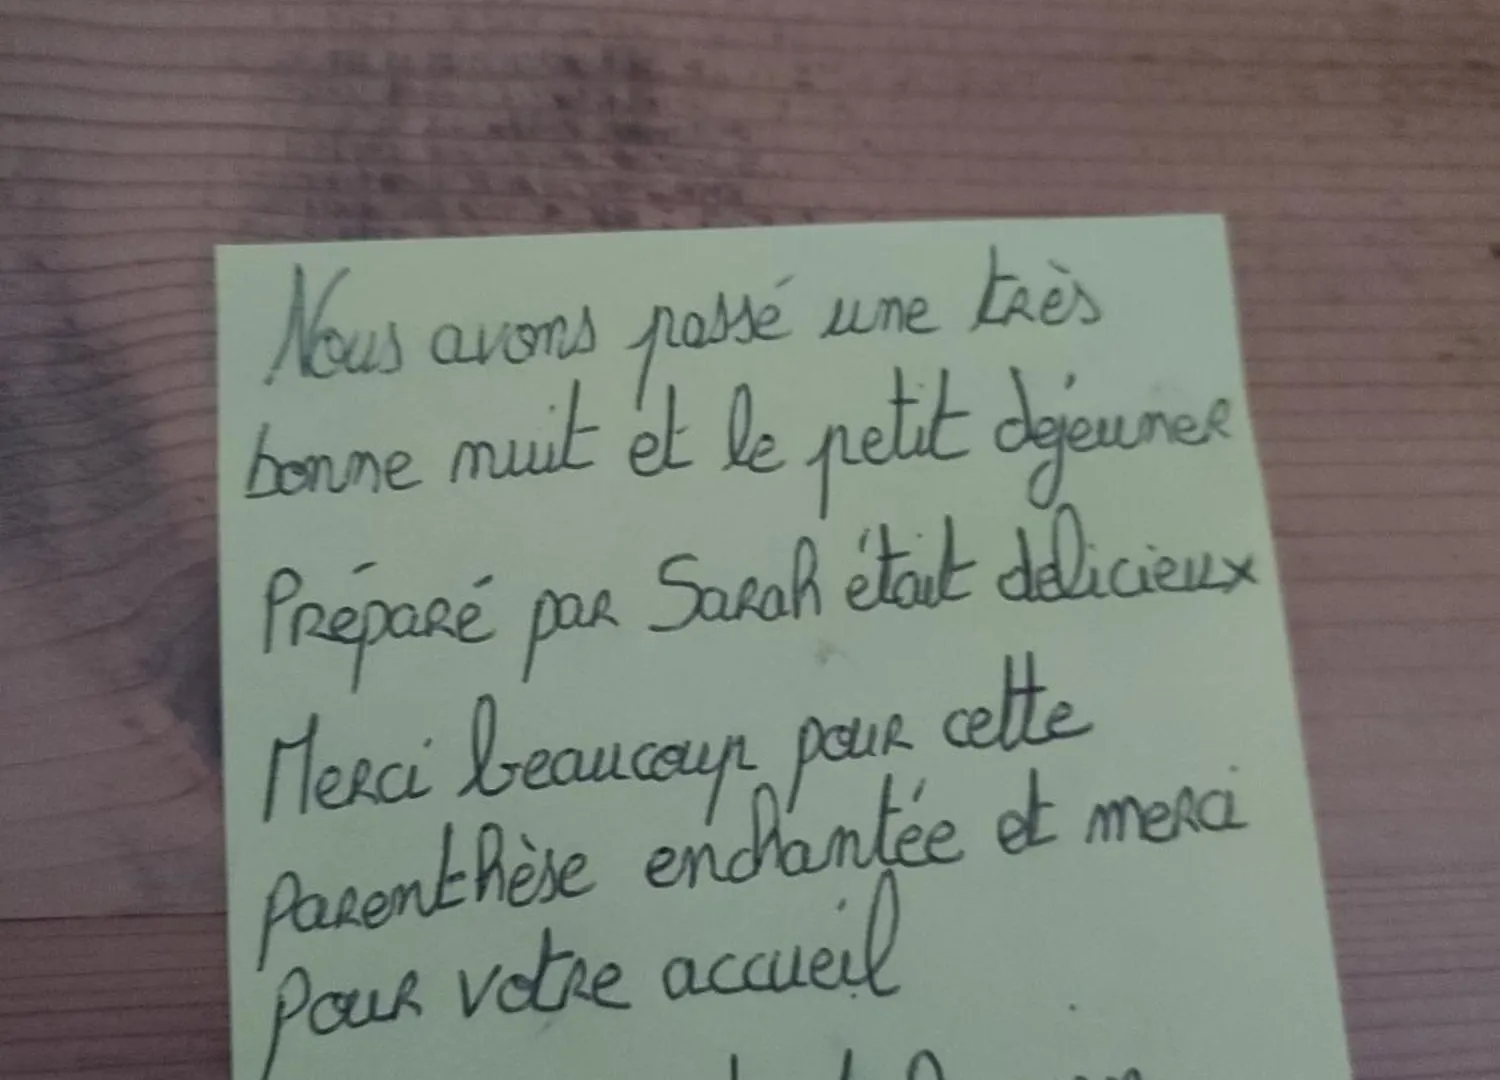 Nous avons passé une très
bonne nuit et le petit déjeuner
Préparé par Sarah était délicieux
Merci beaucoup pour cette
parenthèse enchantée et merci
pour votre accueil